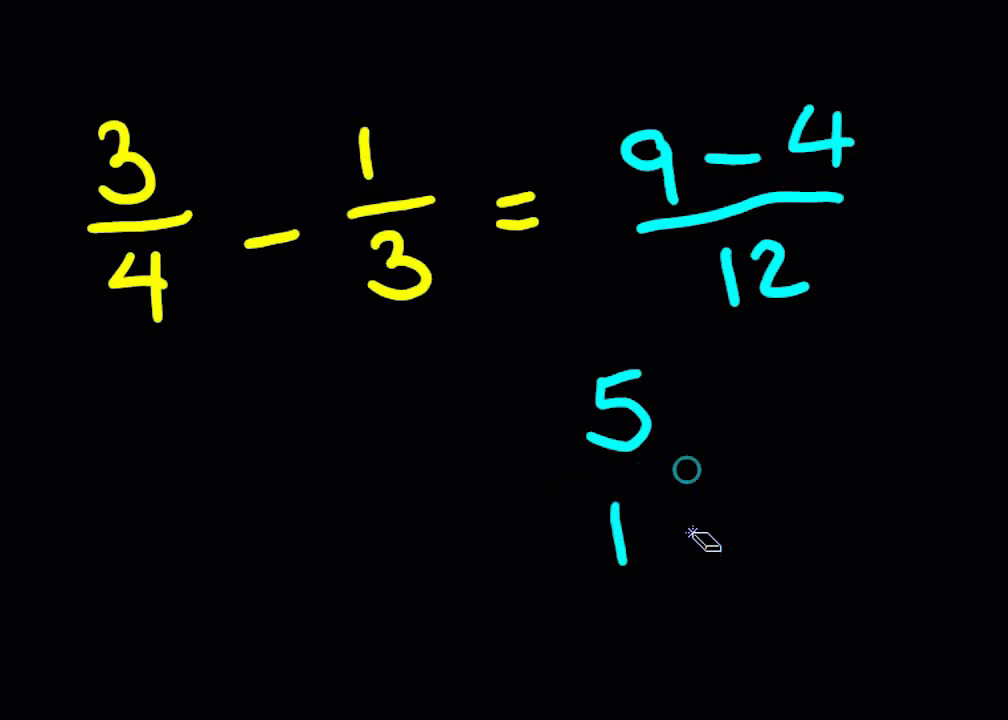 3/4 - 1/3 = 9-4/12
5
1